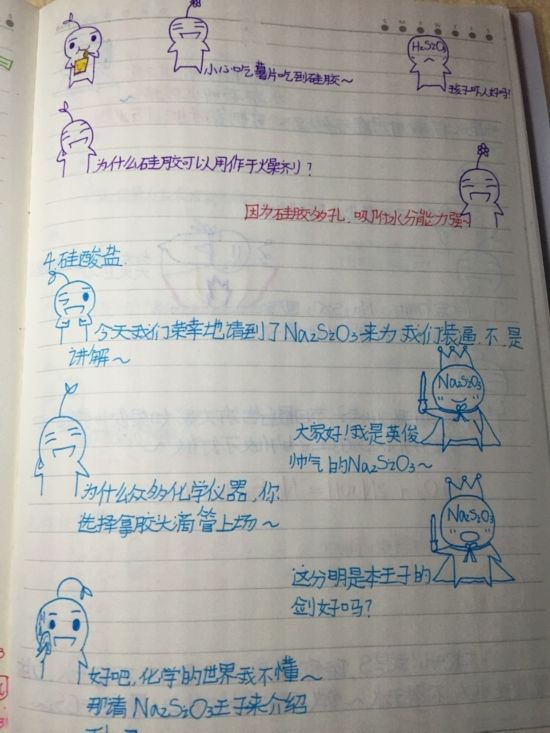 S M T W T F S
H₂S₂O₃
小心吃薯片吃到硅胶~
孩子吓人好吗!
为什么硅胶可以用作干燥剂?
因为硅胶多孔,吸附水分能力强~
4.硅酸盐
今天我们荣幸地请到了Na₂S₂O₃来为我们装逼,不是
讲解~
Na₂S₂O₃
大家好!我是英俊
帅气的Na₂S₂O₃~
为什么众多化学仪器,你
选择拿胶头滴管上场~
Na₂S₂O₃
这分明是本王子的
剑好吗?
好吧,化学的世界我不懂~
那请Na₂S₂O₃王子来介绍